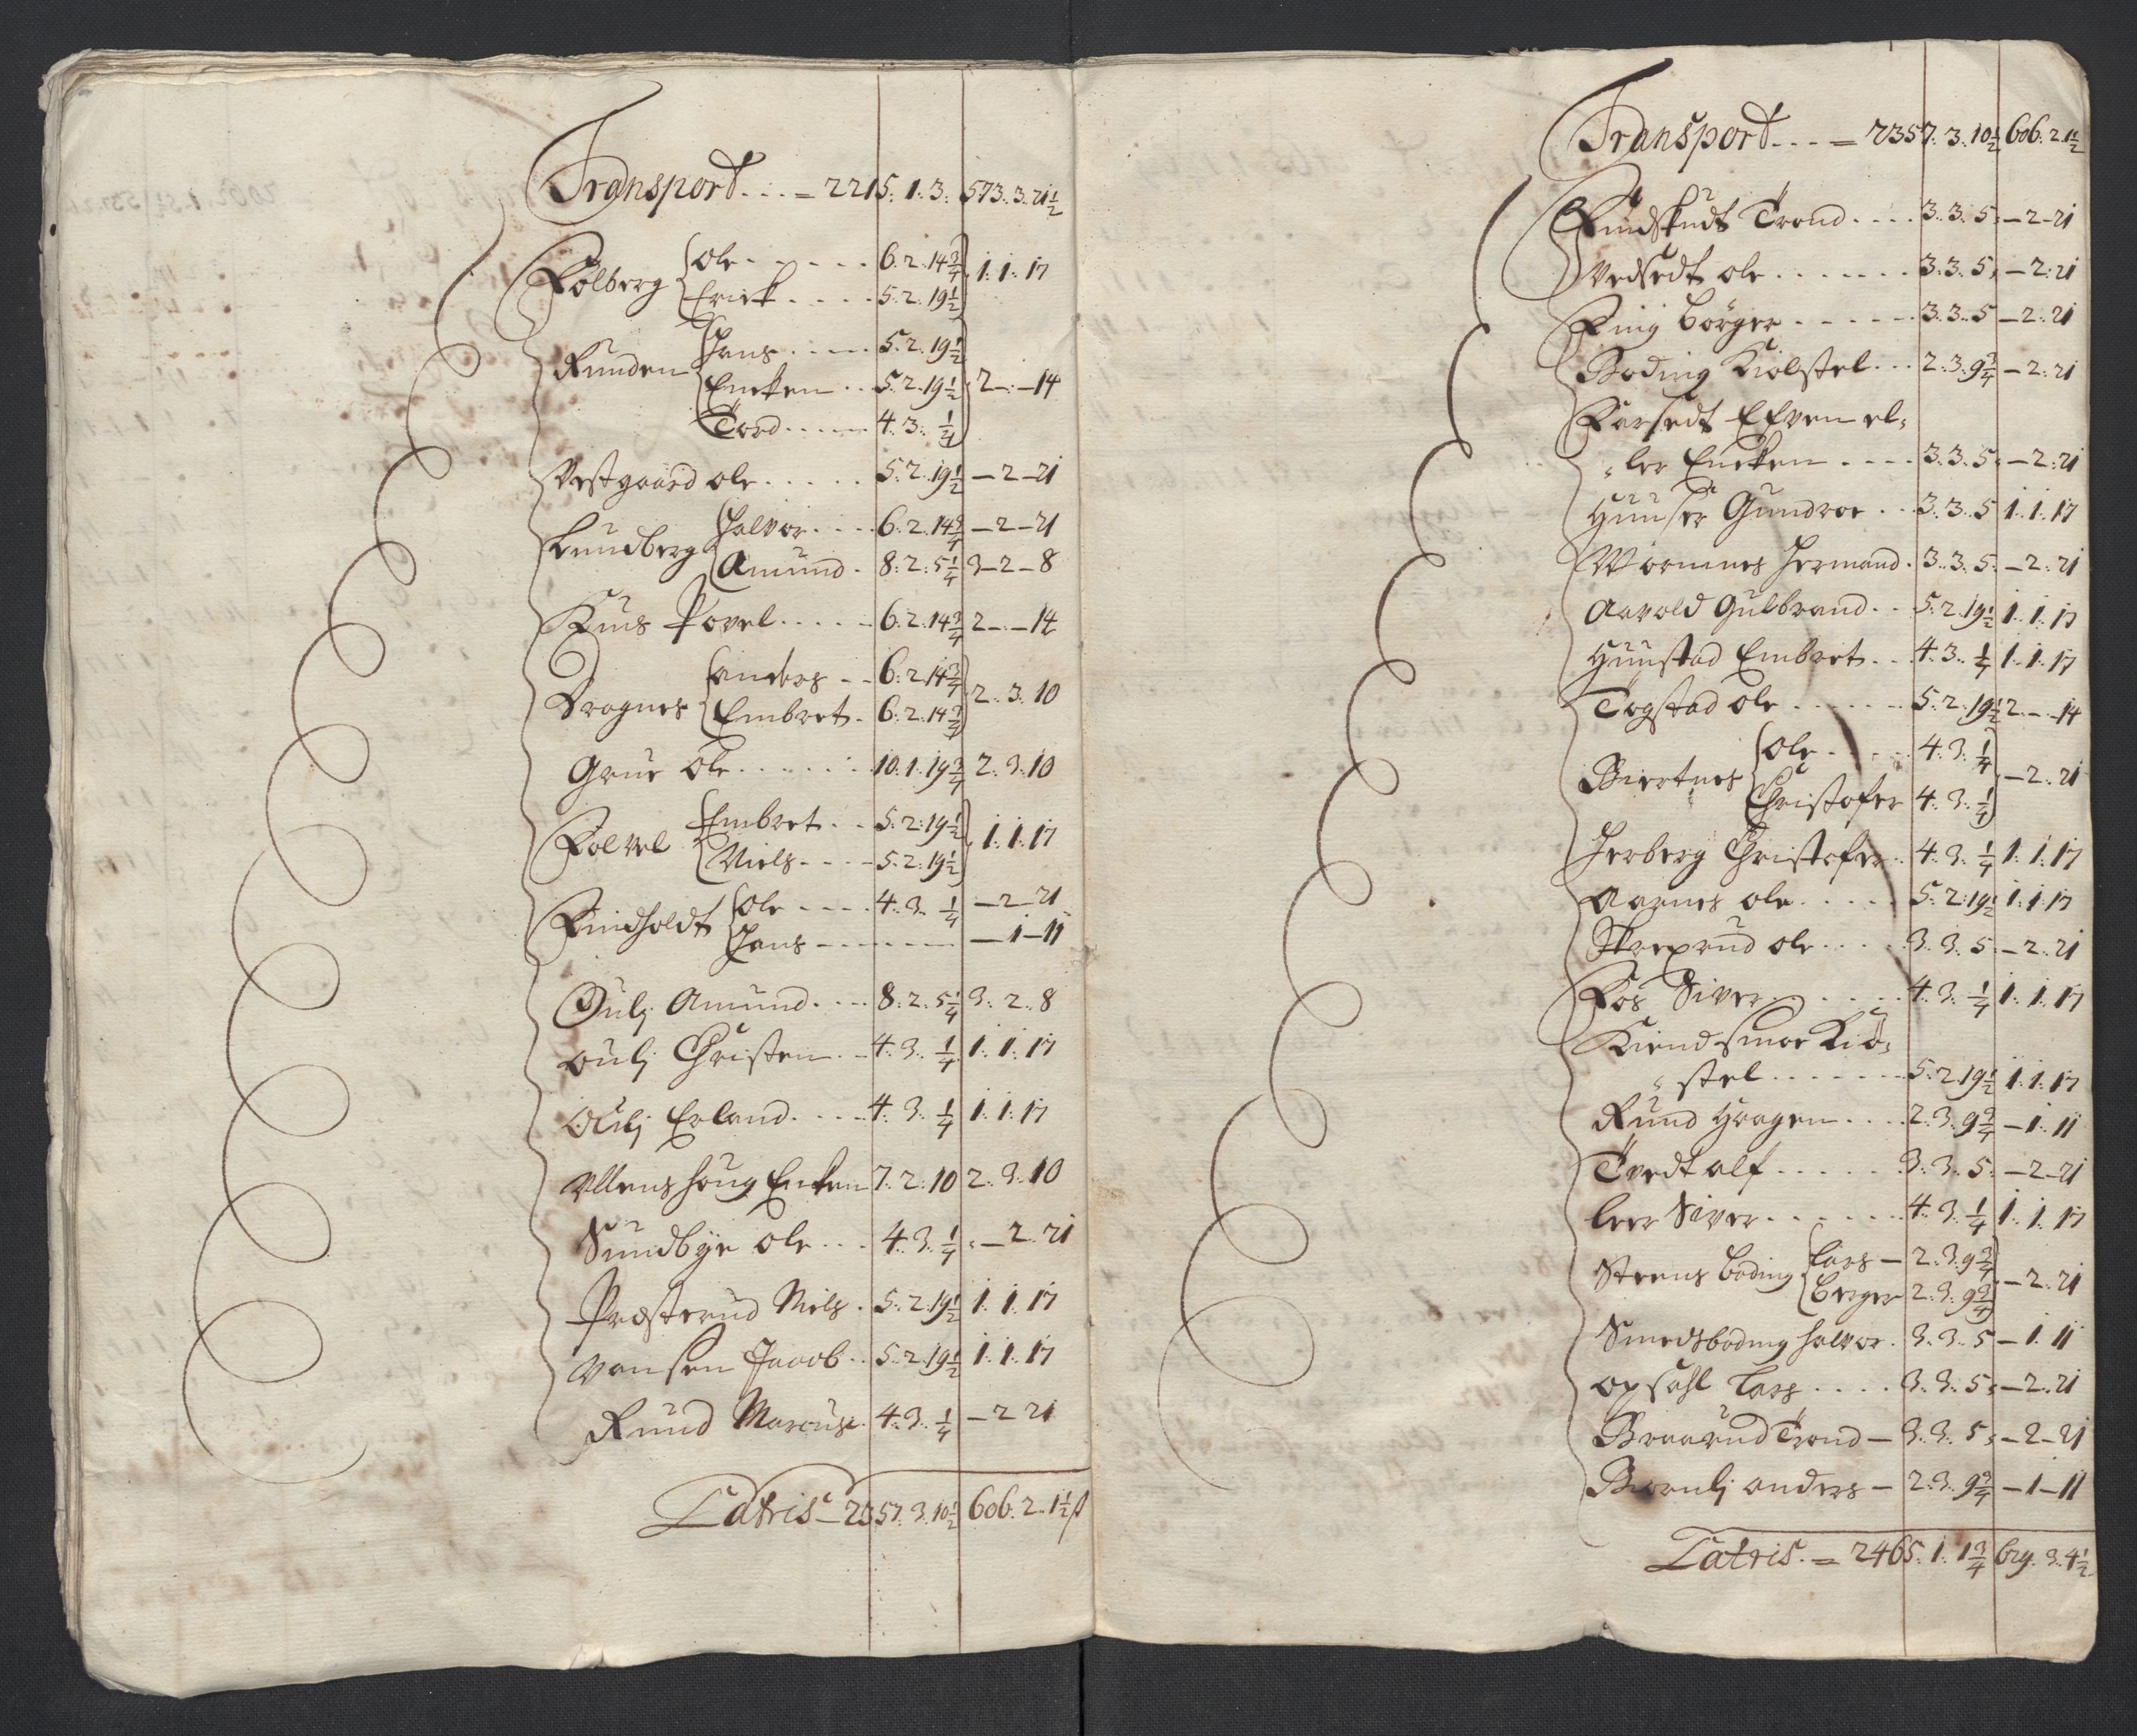 Transport. . . = 2215. 1. 3. 573. 3. 21½
Kolberg Ole . . . . . 6. 2. 14¾ 1. 1. 17
Erick . . . . 5. 2. 19½
Runden Hans . . . . 5. 2. 19½
Encken . . 5. 2. 19½ 2 - . - 14
Tord . . . . 4. 3. ¼
Vestgaard ole . . . . . 5. 2. 19½ - 2 - 21
Lundberg Halvor . . . 6. 2. 14¾ - 2 - 21
Amund . 8. 2. 5¼ 3 - 2 - 8
Povel . . . . . 6. 2. 14¾ 2 - . - 14
Dragnes anders - - 6. 2. 14¾ 2. 3. 10
Embret . 6. 2. 14¾
Grue Ole . . . . . . . 10. 1. 19¾ 2. 3. 10
Kolvel Embret . . 5. 2. 19½ 1. 1. 17
Niels . . . . 5. 2. 19½
Kindholdt Ole . . . . 4. 3. ¼ - 2 - 21
Hans - . . . . . - 1 - 11
Oulj Amund . . . . 8. 2. 5¼ 3. 2. 8
oulj Christen . . 4. 3. ¼ 1. 1. 17
Oulj Erland . . . . 4. 3. ¼ 1. 1. 17
Ullenshoug Encken 7. 2. 10 2. 3. 10
Sundbye ole . . . 4. 3. ¼ - 2. 21
Præsterud Niels . 5. 2. 19½ 1. 1. 17
Vansen Jacob . . 5. 2. 19½ 1. 1. 17
Rund Marcus . 4. 3. ¼ - 2 21
Latris - 2357. 3. 10½ 606. 2. 1½
Transport . . . = 2357. 3. 10½ 606. 2. 1½
Trond . . . . 3. 3. 5. - 2 - 21
Vedsedt ole . . . . . . . 3. 3. 5. - 2. 21
Ring börger . . . . . 3. 3. 5 - 2. 21
Boding Kiolstel . . . 2. 3. 9¾ - 2. 21
Efven el-
ler Encken . . . . 3. 3. 5. - 2. 21
Huuser Gundroe . . 3. 3. 5 1. 1. 17
Wormnes Hermand . 3. 3. 5. - 2. 21
Aavold Gulbrand . . 5. 2. 19½ 1. 1. 17
Huustad Embret . . . 4. 3. ¼ 1. 1. 17
Togstad ole . . . . . . . 5. 2. 19½ 2. - . - 14
Biertnes Ole . . . . . 4. 3. ¼ - 2. 21
Christofer 4. 3. ¼
Herberg Christofer . . 4. 3. ¼ 1. 1. 17
Aarnes ole . . . . . 5. 2. 19½ 1. 1. 17
Skreprud ole . . . . 3. 3. 5. - 2. 21
Fos Siver . . . . . . 4. 3. ¼ 1. 1. 17
Kiendsmoe Kiö-
stel . . . . . . . 5. 2. 19½ 1. 1. 17
Rund Haagen . . . . 2. 3. 9¾ - 1. 11
Tvedt alf . . . . . 3. 3. 5. - 2 - 21
leer Siver . . . . . . 4. 3. ¼ 1. 1. 17
Steens boding Lars - 2. 3. 9¾ - 2. 21
berger 2. 3. 9¾
Smedsboding halvor . 3. 3. 5 - 1. 11
opsahl Lars . . . . 3. 3. 5. - 2. 21
Braarud Trond - 3. 3. 5. - 2 - 21
Biornlj anders - 2. 3. 9¾ - 1 - 11
Latris . = 2465. 1. 1¾ 629. 3. 4½